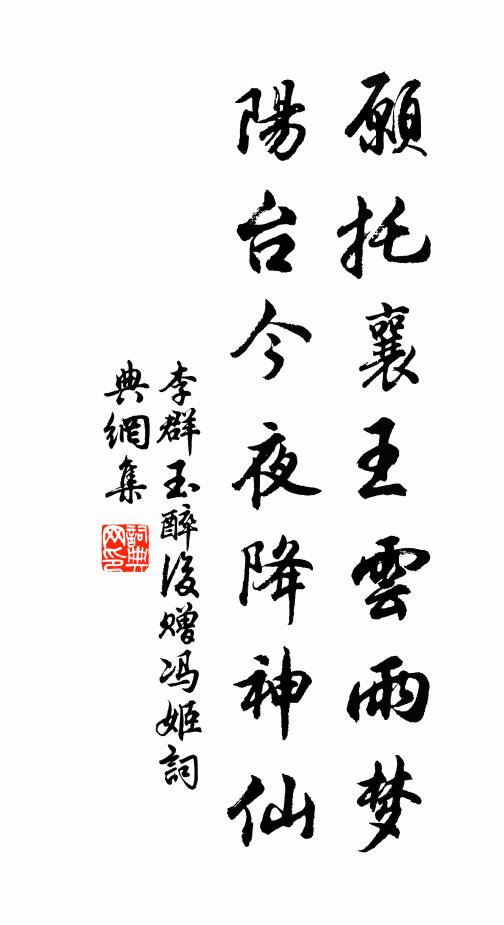 願托襄王雲雨梦
陽台今夜降神仙
李群玉醉後赠冯姬詞
典網集
詞典
网印